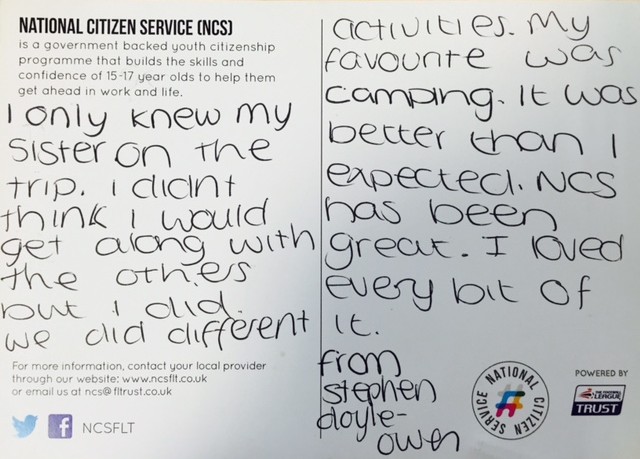 NATIONAL CITIZEN SERVICE (NCS)
is a government backed youth citizenship
programme that builds the skills and
confidence of 15-17 year olds to help them
get ahead in work and life.
I only knew my
sister on the
trip. I didnt
think I would
get along with
the others
but I did.
we did different
activities. My
favourite was
camping. It was
better than I
expected. NCS
has been
great. I loved
every bit of
it.
from
stephen
doyle-
owen
For more information, contact your local provider
through our website: www.ncsflt.co.uk
or email us at ncs@fltrust.co.uk
NCSFLT
NATIONAL CITIZEN SERVICE
POWERED BY
THE FOOTBALL
LEAGUE
TRUST